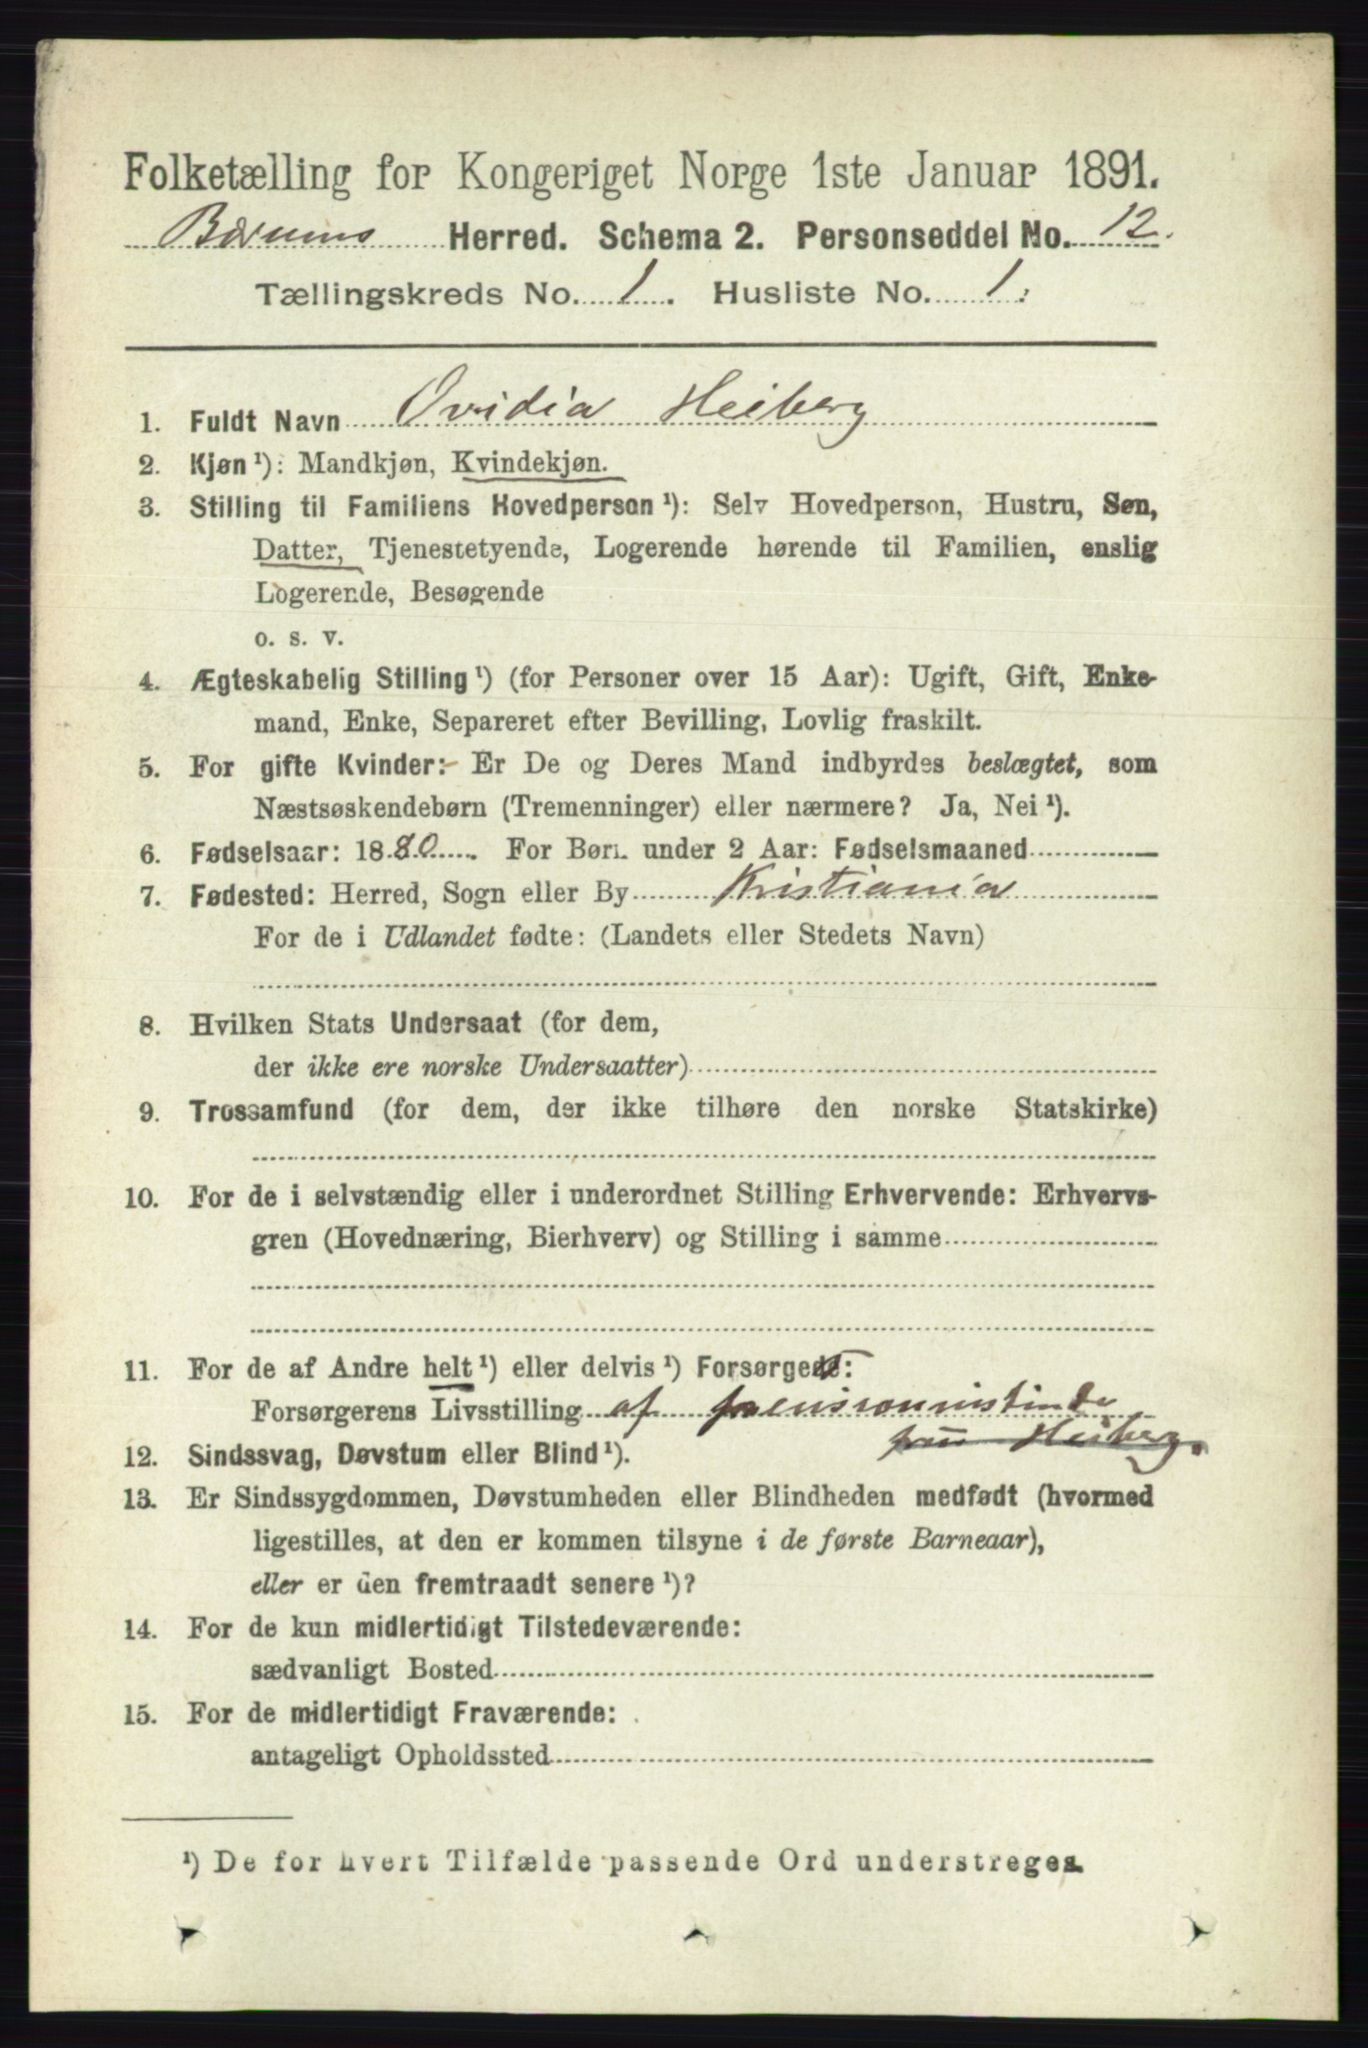 Folketælling for Kongeriget Norge 1ste Januar 1891.
Bærums Herred. Schema 2. Personseddel No. 12.
Tællingskreds No. 1. Husliste No. 1.
1. Fuldt Navn Ovidia Heiberg
2. Kjøn¹): Mandkjøn, Kvindekjøn.
3. Stilling til Familiens Hovedperson¹): Selv Hovedperson, Hustru, Søn,
Datter, Tjenestetyende, Logerende hørende til Familien, enslig
Logerende, Besøgende
o. s. v.
4. Ægteskabelig Stilling¹) (for Personer over 15 Aar): Ugift, Gift, Enke-
mand, Enke, Separeret efter Bevilling, Lovlig fraskilt.
5. For gifte Kvinder: Er De og Deres Mand indbyrdes beslægtet, som
Næstsøskendebørn (Tremenninger) eller nærmere? Ja, Nei¹).
6. Fødselsaar: 1880. For Børn under 2 Aar: Fødselsmaaned
7. Fødested: Herred, Sogn eller By Kristiania
For de i Udlandet fødte: (Landets eller Stedets Navn)
8. Hvilken Stats Undersaat (for dem,
der ikke ere norske Undersaatter)
9. Trossamfund (for dem, der ikke tilhøre den norske Statskirke)
10. For de i selvstændig eller i underordnet Stilling Erhvervende: Erhvervs-
gren (Hovednæring, Bierhverv) og Stilling i samme
11. For de af Andre helt¹) eller delvis¹) Forsørgede:
Forsørgerens Livsstilling af pensionnistinde
fru Heiberg.
12. Sindssvag, Døvstum eller Blind¹).
13. Er Sindssygdommen, Døvstumheden eller Blindheden medfødt (hvormed
ligestilles, at den er kommen tilsyne i de første Barneaar),
eller er den fremtraadt senere¹)?
14. For de kun midlertidigt Tilstedeværende:
sædvanligt Bosted
15. For de midlertidigt Fraværende:
antageligt Opholdssted
¹) De for hvert Tilfælde passende Ord understreges.